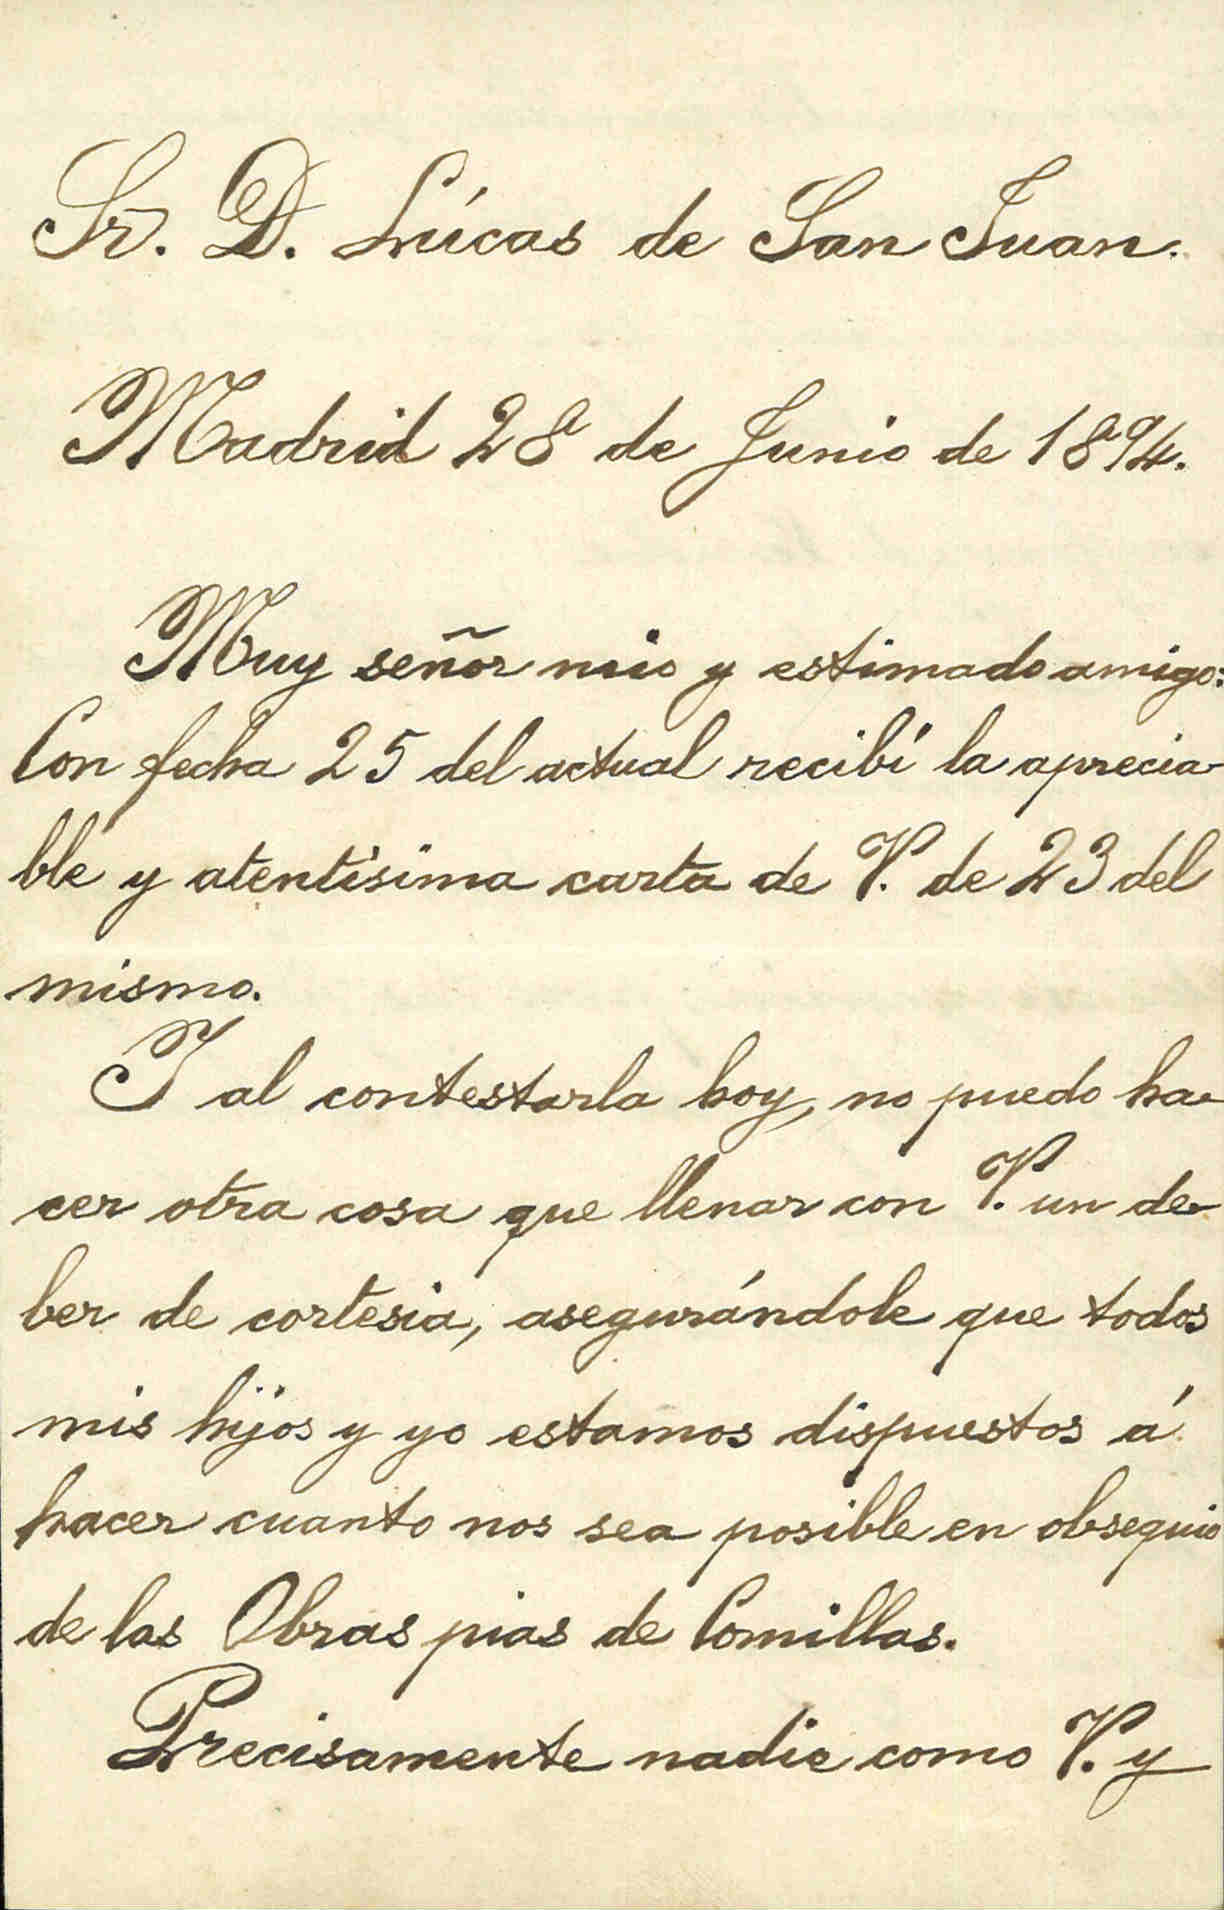 Sr. D. Lúcas de San Juan.
Madrid 28 de Junio de 1894.
Muy señor mio y estimado amigo:
Con fecha 25 del actual recibí la aprecia-
ble y atentísima carta de V. de 23 del
mismo.
Y al contestarla hoy, no puedo ha-
cer otra cosa que llenar con V. un de-
ber de cortesia, asegurándole que todos
mis hijos y yo estamos dispuestos á
hacer cuanto nos sea posible en obsequio
de las Obras pias de Comillas.
Precisamente nadie como V. y